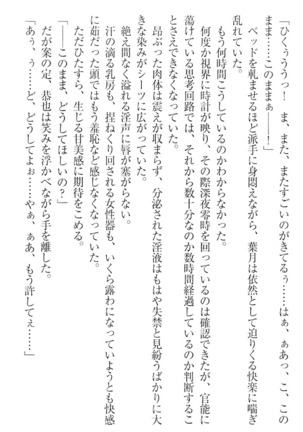 「ひぐぅううっ！　ま、また、またすごいのがきてるぅ……はぁあ、ぁあっ、こ、この
まま……このままぁ――！」
ベッドを軋ませるほど派手に身悶えながら、葉月は依然として迫りくる快楽に喘ぎ
乱れていた。
もう何時間こうしているのかわからなかった。
何度か視界に時計が映り、その際深夜零時を回っているのは確認できたが、官能に
蕩けている思考回路では、それから数十分なのか数時間経過しているのか判断するこ
とさえできなくなっていた。
昂ぶった肉体は震えが収まらず、分泌された淫液はもはや失禁と見紛うばかりに大
きな染みがシーツに広がっていた。
絶え間なく溢れる淫声に唇が塞がらない。
汗の滴る乳房も、捏ねくり回される女性器も、いくら露わになっていようとも快感
に茹だった頭ではもう羞恥など感じなくなっていた。
ただひたすら、生じる甘美感に期待をこめる。
「――このまま、どうしてほしいの？」
だが案の定、恭也は笑みを浮かべながら手を離した。
「あぅ、ぅ……ど、どうしてよぉ……やぁ、ぁあ、もう許してぇ……」